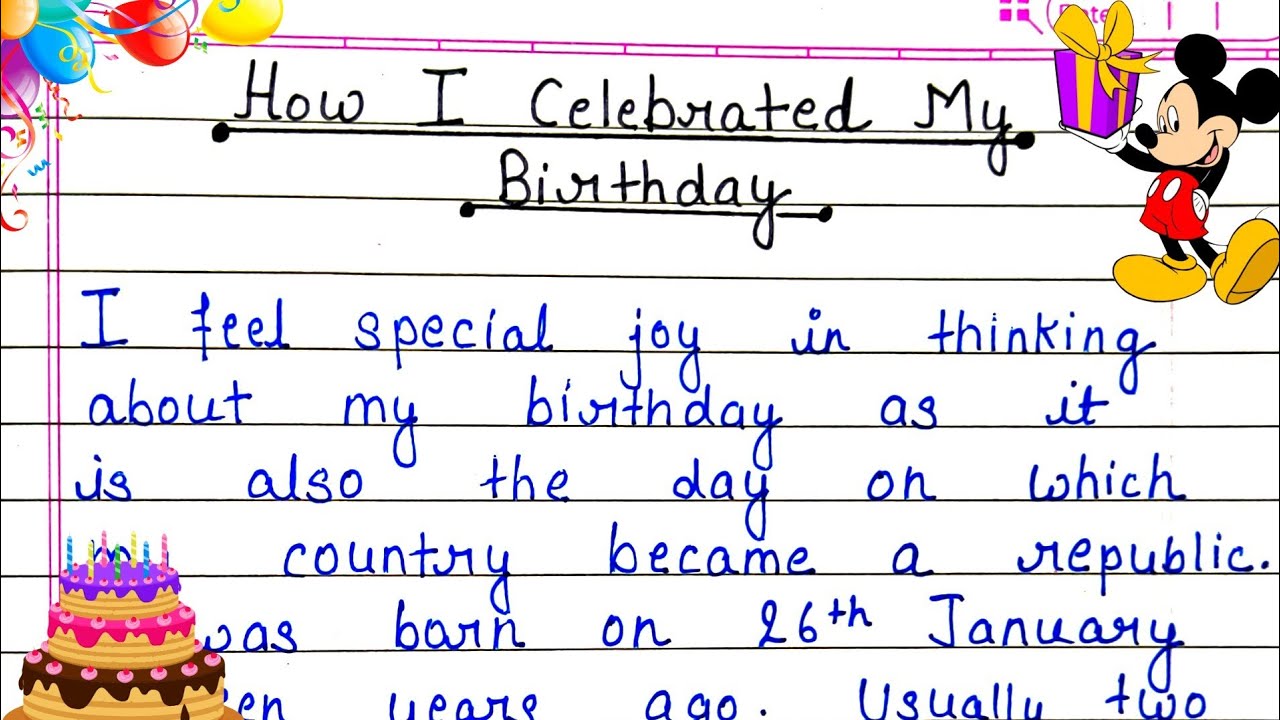 Date
How I Celebrated My
Birthday
I feel special joy in thinking
about my birthday as it
is also the day on which
country became a republic.
was born on 26th January
years ago. Usually two